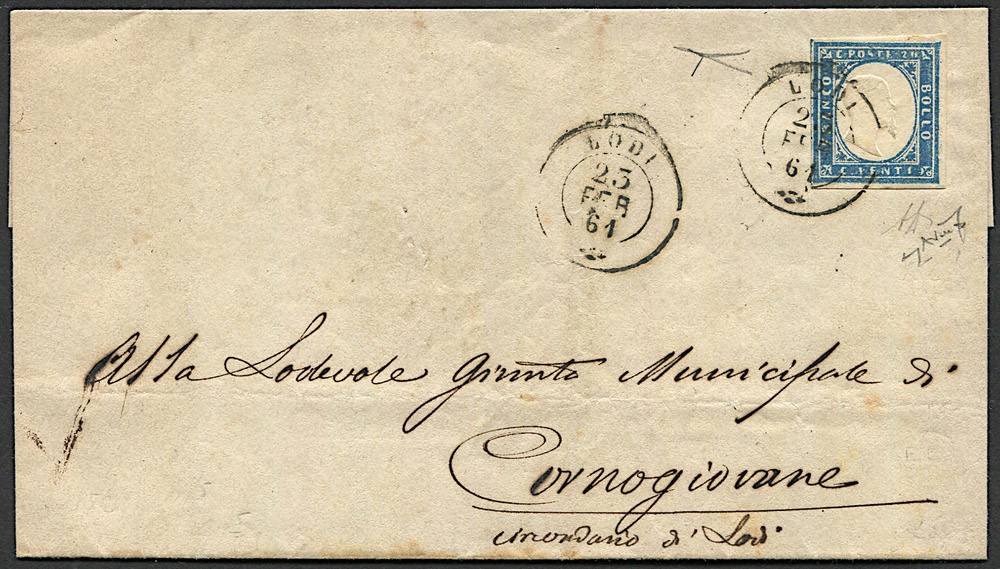 C. POSTE 20
FRANCO
BOLLO
C. VENTI
LODI
2
FEB
61
LODI
23
FEB
61
Alla Lodevole Giunta Municipale di
Cornogiovane
circondario di Lodi